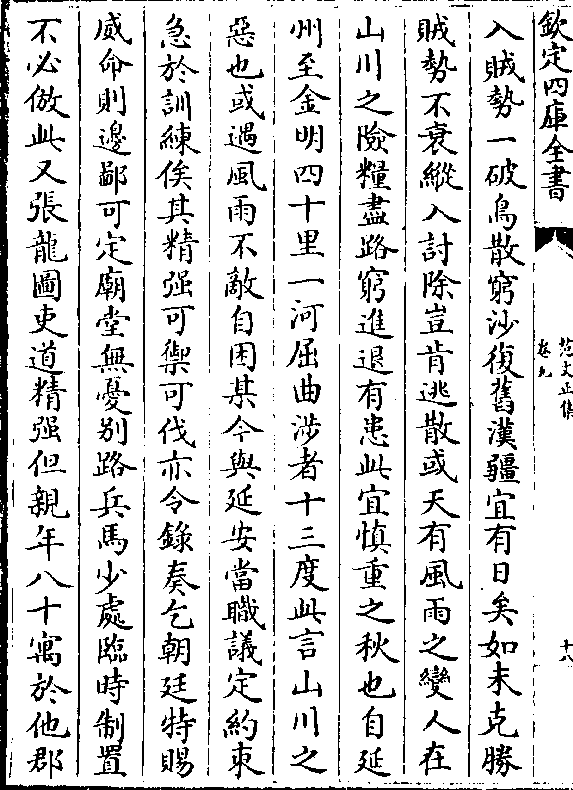 欽定四庫全書
范文正集
卷九
十八
入賊勢一破鳥散窮沙復舊漢疆宜有日矣如未克勝
賊勢不衰縱入討除豈肯逃散或天有風雨之變人在
山川之險糧盡路窮進退有患此宜慎重之秋也自延
州至金明四十里一河屈曲涉者十三度此言山川之
惡也或遇風雨不敵自困某今與延安當職議定約束
急於訓練俟其精强可禦可伐亦令錄奏乞朝廷特賜
威命則邊鄙可定廟堂無憂别路兵馬少處臨時制置
不必倣此又張龍圖吏道精强但親年八十寓於他郡